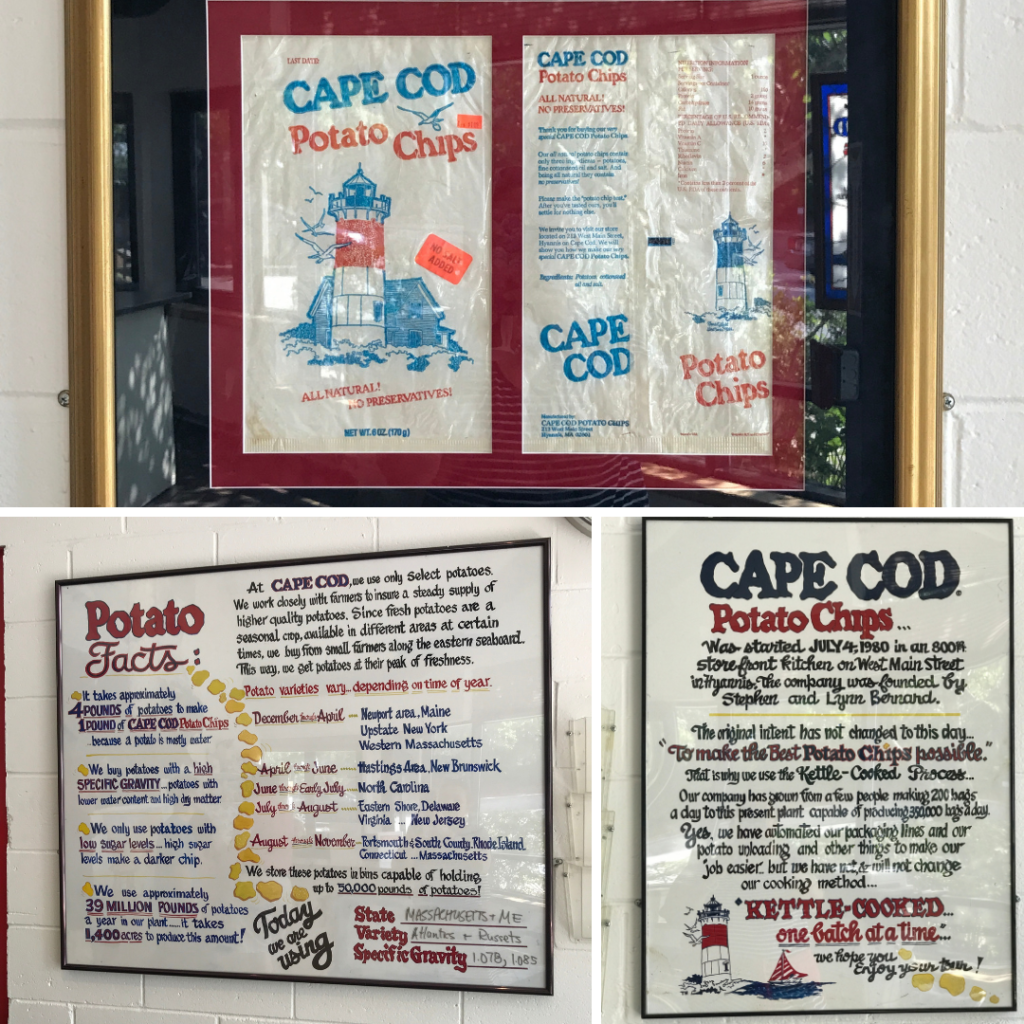 LAST DATE:
CAPE COD
Potato Chips
NO SALT
ADDED
ALL NATURAL!
NO PRESERVATIVES!
NET WT. 6 OZ. (170 g)
CAPE COD
Potato Chips
ALL NATURAL!
NO PRESERVATIVES!
Thank you for buying our very
special CAPE COD Potato Chips.
Our all natural potato chips contain
only three ingredients – potatoes,
fine cottonseed oil and salt. And
being all natural they contain
no preservatives!
Please make the "potato chip test."
After you've tasted ours, you'll
settle for nothing else.
We invite you to visit our store
located on 212 West Main Street,
Hyannis on Cape Cod. We will
show you how we make our very
special CAPE COD Potato Chips.
Ingredients: Potatoes, cottonseed
oil and salt.
CAPE
COD
CAPE COD POTATO CHIPS
212 West Main Street
Hyannis, MA 02601
NUTRITION INFORMATION
Potato
Chips
Potato
Facts:
It takes approximately
4 POUNDS of potatoes to make
1 POUND of CAPE COD Potato Chips
...because a potato is mostly water
We buy potatoes with a high
SPECIFIC GRAVITY...potatoes with
lower water content and high dry matter
We only use potatoes with
low sugar levels... high sugar
levels make a darker chip.
We use approximately
39 MILLION POUNDS of potatoes
a year in our plant.....it takes
1,400 acres to produce this amount!
At CAPE COD, we use only select potatoes.
We work closely with farmers to insure a steady supply of
higher quality potatoes. Since fresh potatoes are a
seasonal crop, available in different areas at certain
times, we buy from small farmers along the eastern seaboard.
This way, we get potatoes at their peak of freshness.
Potato varieties vary...depending on time of year.
December through April ..... Newport area, Maine
Upstate New York
Western Massachusetts
April through June ..... Hastings Area, New Brunswick
June through Early July ..... North Carolina
July through August ..... Eastern Shore, Delaware
Virginia ... New Jersey
August through November - Portsmouth & South County, Rhode Island
Connecticut ... Massachusetts
We store these potatoes in bins capable of holding
up to 50,000 pounds of potatoes!
Today
we are
using
State MASSACHUSETTS + ME
Variety Atlantes + Russets
Specific Gravity 1.078, 1.085
CAPE COD®
Potato Chips...
Was started JULY 4, 1980 in an 800 ft
storefront kitchen on West Main Street
in Hyannis. The company was founded by
Stephen and Lynn Bernard.
The original intent has not changed to this day...
"To make the Best Potato Chips possible."
That is why we use the Kettle-Cooked Process...
Our company has grown from a few people making 200 bags
a day to this present plant capable of producing 350,000 bags a day.
Yes, we have automated our packaging lines and our
potato unloading and other things to make our
job easier but we have not & will not change
our cooking method...
"KETTLE-COOKED...
one batch at a time"...
we hope you
Enjoy your tour!